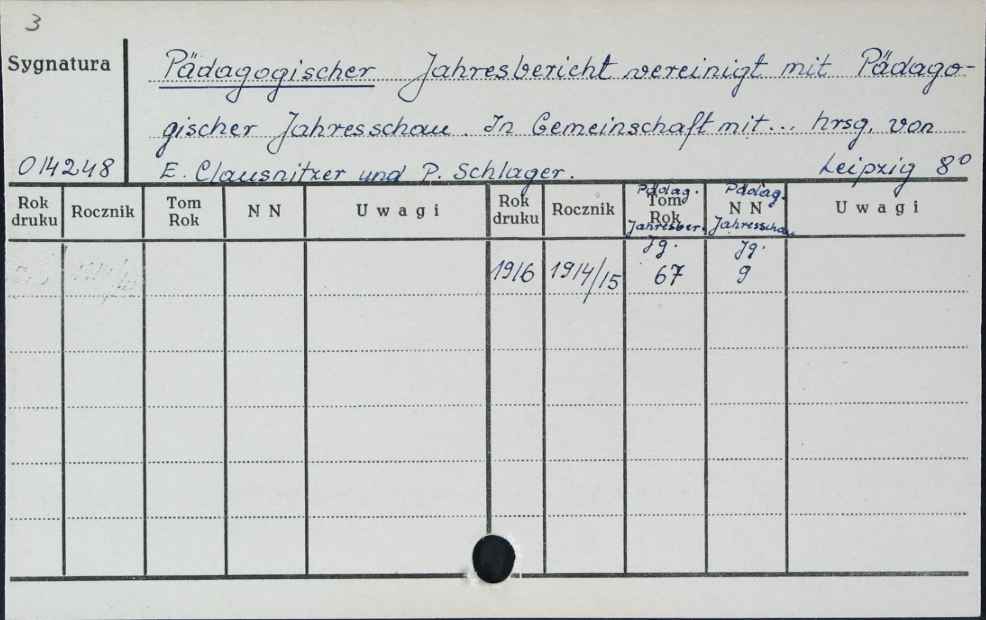 3
Sygnatura
Pädagogischer Jahresbericht vereinigt mit Pädago-
gischer Jahresschau. In Gemeinschaft mit... hrsg. von
014248 E. Clausnitzer und P. Schlager. Leipzig 8°
Rok druku Rocznik Tom Rok N N Uwagi Rok druku Rocznik Pädag. Tom Rok Jahresber. Pädag. N N Jahresschau Uwagi
Jg. Jg.
1916 1914/15 67 9